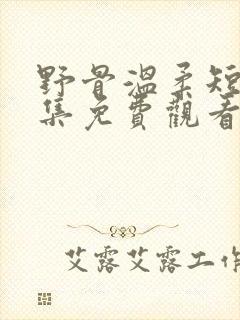 野骨溫柔短
集免費觀看
艾露艾露工作